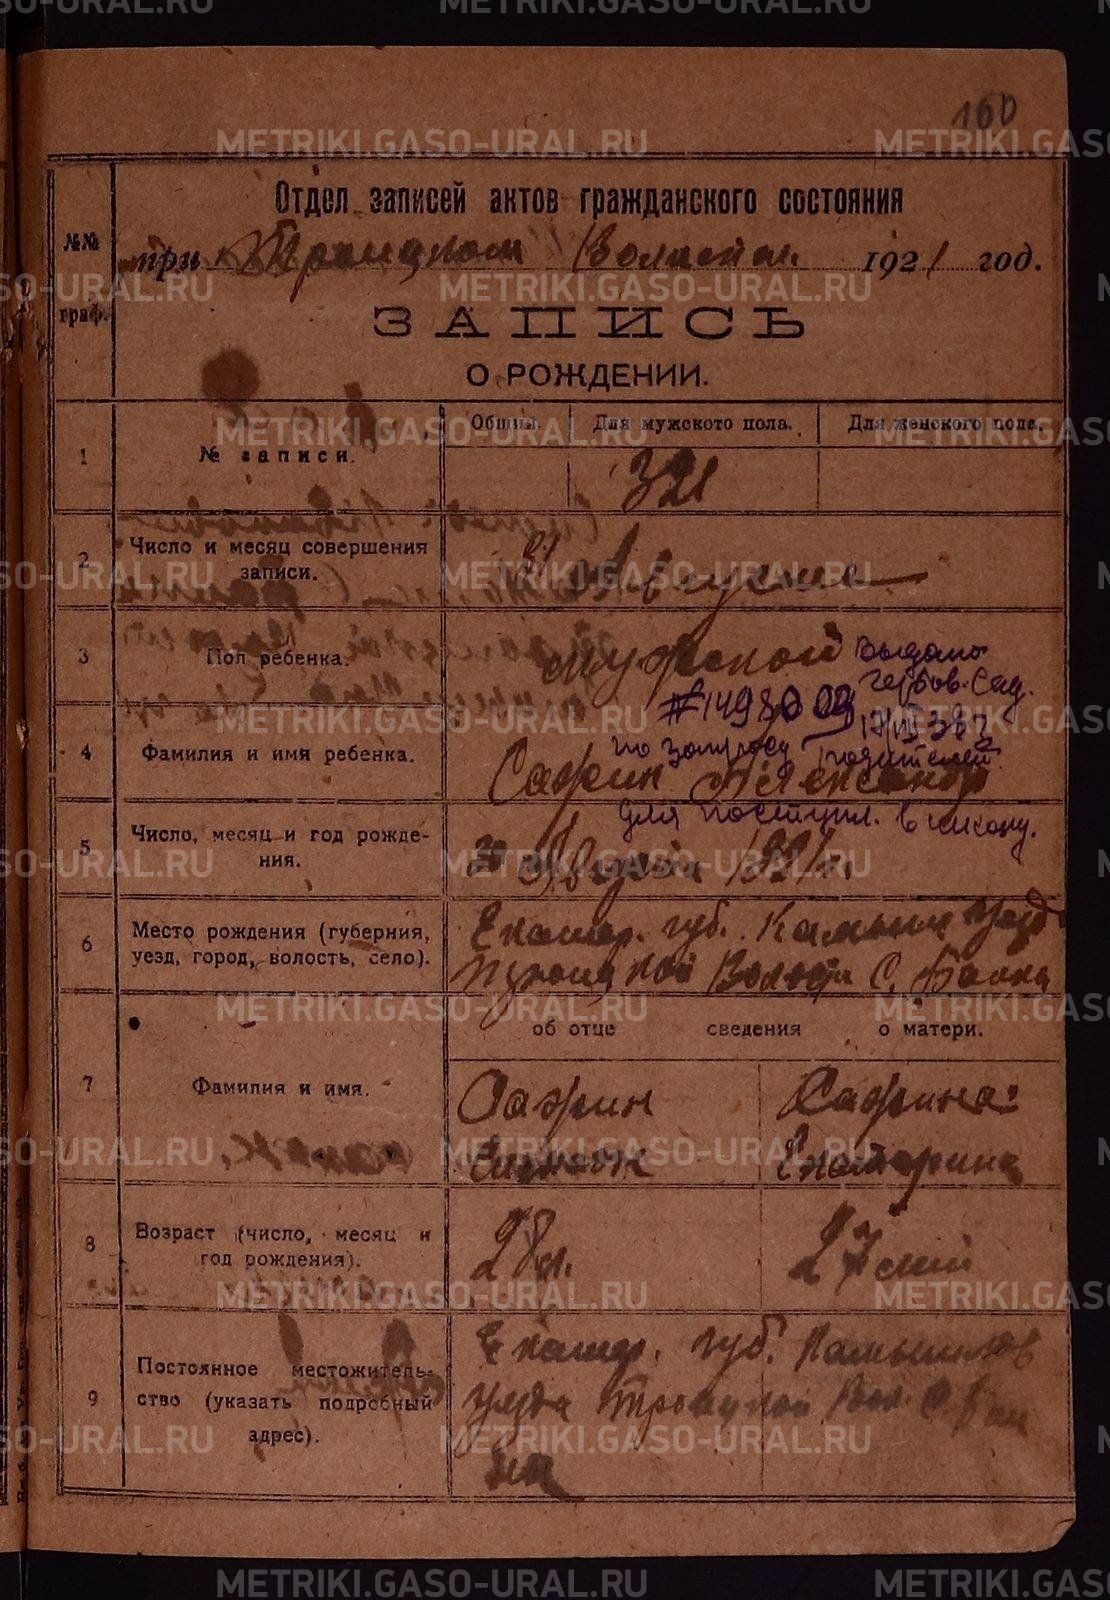 160
Отдел записей актов гражданского состояния
№№ граф.
при Троицком Волости. 1921 год.
ЗАПИСЬ
О РОЖДЕНИИ.
Общий. Для мужского пола. Для женского пола.
1 № записи. 321
2 Число и месяц совершения
записи. 31 Августа
3 Пол ребенка. Мужской
Выдано
гербов. Сад.
#149809
4 Фамилия и имя ребенка. Сажин Александр
по запросу родителей
для поступл. в школу.
5 Число, месяц и год рожде-
ния. 1921 г.
6 Место рождения (губерния,
уезд, город, волость, село).
Екатер. губ. Камышл уезд
Троицкой Волости С.
об отце сведения о матери.
7 Фамилия и имя.
Сажин Сажина
Екатерина
8 Возраст (число, месяц и
год рождения).
28 л. 27 лет
9 Постоянное местожитель-
ство (указать подробный
адрес).
Екатер. губ. Камышлов
уезда Троицкой Вол. С.
METRIKI.GASO-URAL.RU